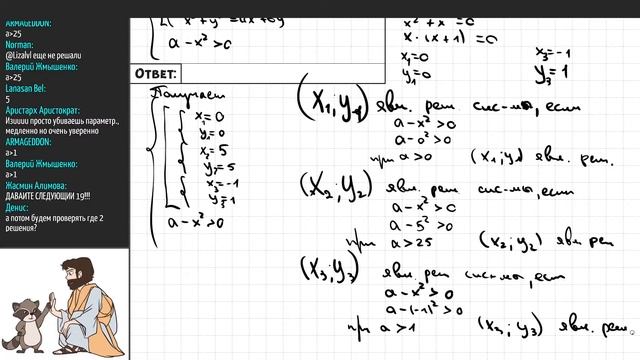 ARMAGEDDON:
a>25
Norman:
@Lizalvl еще не решали
Валерий Жмышенко:
a>25
Lanasan Bel:
5
Аристарх Аристократ:
Изиии просто убиваешь параметр.,
медленно но очень уверенно
ARMAGEDDON:
a>1
Валерий Жмышенко:
a>1
Жасмин Алимова:
ДАВАИТЕ СЛЕДУЮЩИИ 19!!!
Денис:
а потом будем проверять где 2
решения?
a-x²>0
ОТВЕТ:
Получаем
x₁=0
y₁=0
x₂=5
y₂=5
x₃=-1
y₃=1
a-x²>0
x²+x=0
x·(x+1)=0
x₁=0 x₃=-1
y₁=0 y₃=1
(x₁;y₁) явл. реш. сис-мы, если
a-x²>0
a-0²>0
при a>0 (x₁;y₁) явл. реш.
(x₂;y₂) явл. реш. сис-мы, если
a-x²>0
a-5²>0
при a>25 (x₂;y₂) явл. реш
(x₃;y₃) явл. реш. сис-мы, если
a-x²>0
a-(-1)²>0
при a>1 (x₃;y₃) явл. реш.